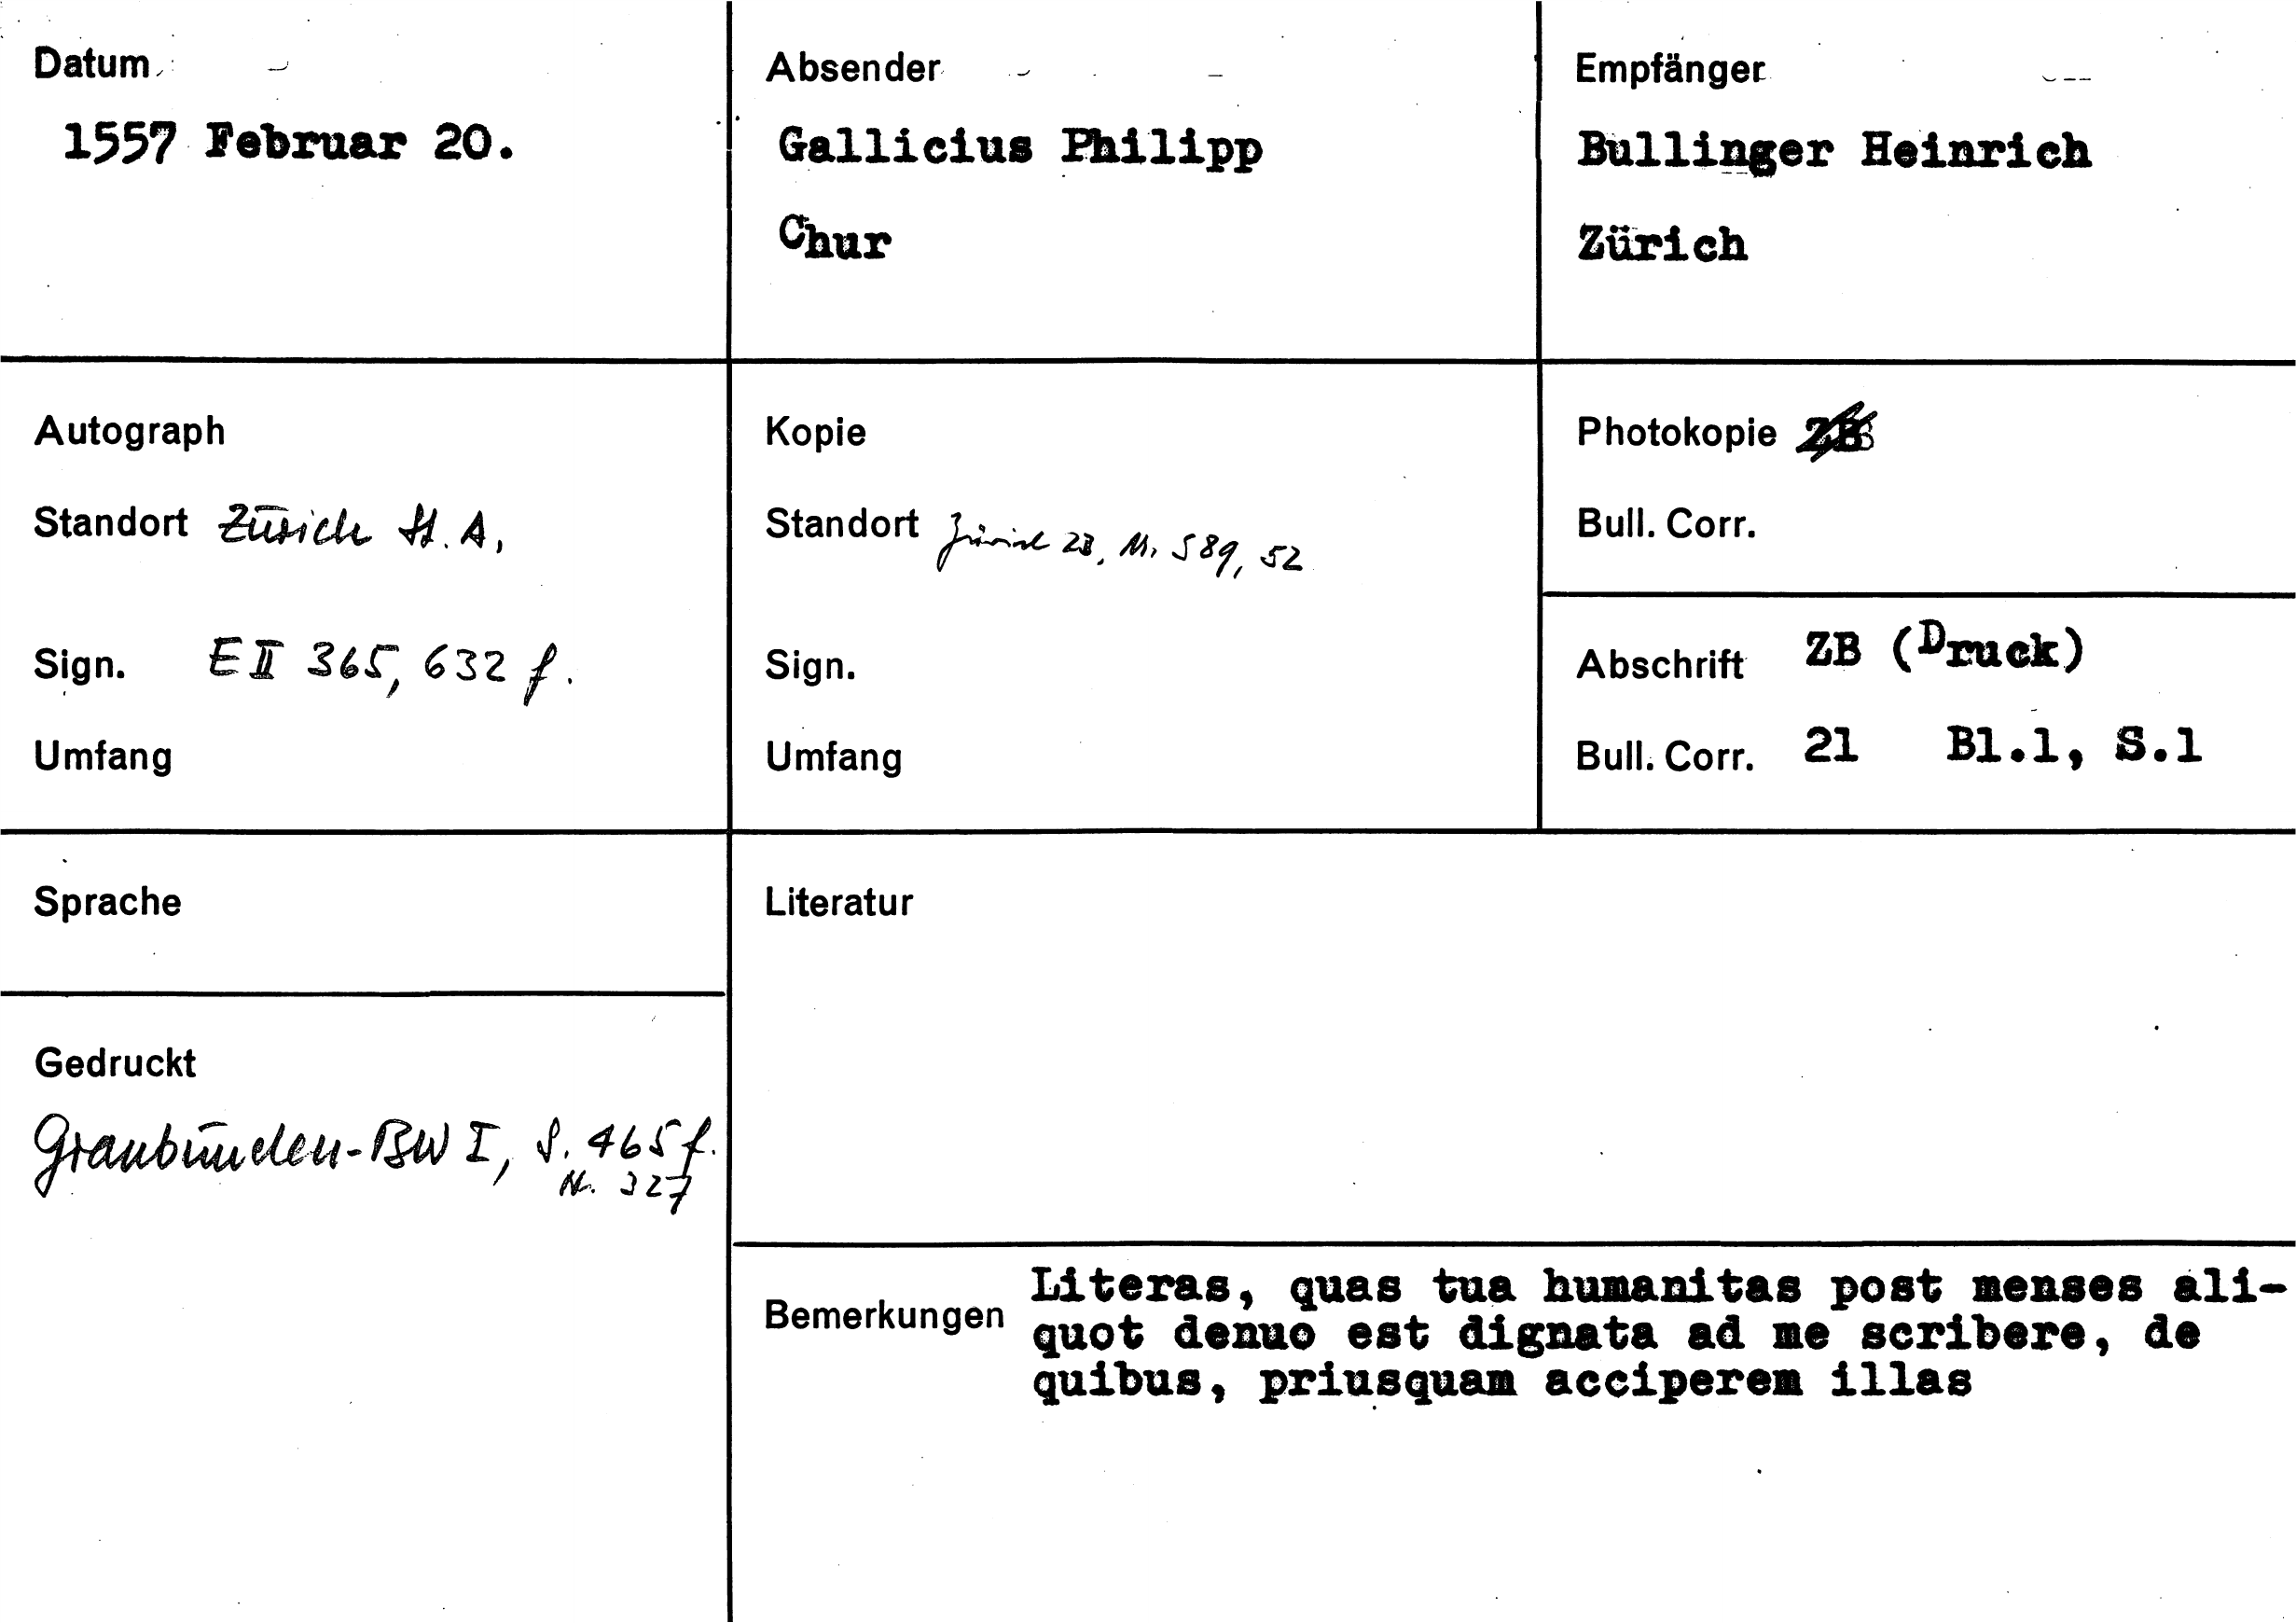 Datum
1557 Februar 20.
Absender
Gallicius Philipp
Chur
Empfänger
Bullinger Heinrich
Zürich
Autograph
Standort Zürich St. A.
Sign. E II 365, 632 f.
Umfang
Kopie
Standort Zürich ZB, Ms S 89, 52
Sign.
Umfang
Photokopie ZB
Bull. Corr.
Abschrift ZB (Druck)
Bull. Corr. 21 Bl.1, S.1
Sprache
Gedruckt
Graubünden-BW I, S. 465 f.
Nr. 327
Literatur
Bemerkungen
Literas, quas tua humanitas post menses ali-
quot denuo est dignata ad me scribere, de
quibus, priusquam acciperem illas